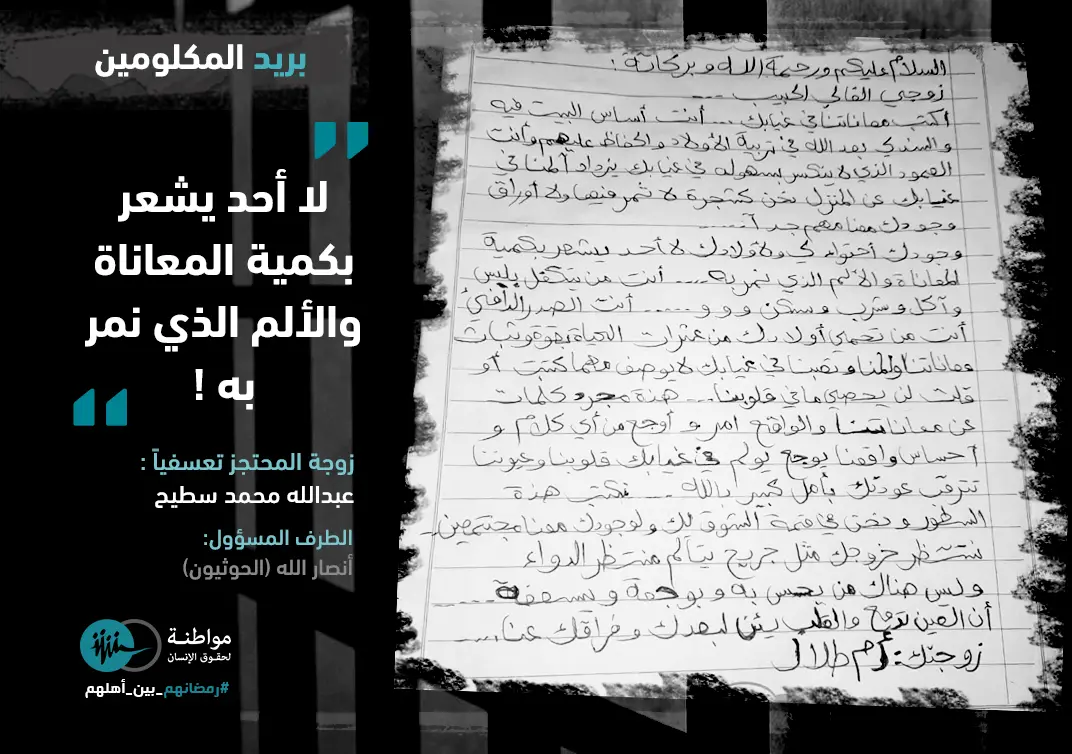 بريد المكلومين
لا أحد يشعر
بكمية المعاناة
والألم الذي نمر
به !
زوجة المحتجز تعسفياً :
عبدالله محمد سطيح
الطرف المسؤول:
أنصار الله (الحوثيون)
مواطنة
لحقوق الإنسان
#رمضانهم_بين_أهلهم
السلام عليكم ورحمة الله وبركاته :
زوجي الغالي الحبيب ....
اكتب معاناتنا في غيابك .... أنت أساس البيت فيه
والسندي بعد الله في تربية الأولاد والحفاظ عليهم وأنت
العمود الذي لا ينكسر بسهوله في غيابك يزداد ألمنا في
غيابك عن المنزل نحن كشجرة لا ثمر فيها ولا أوراق
وجودك معنا مهم جداً ....
وجودك أحتواء لي ولاولادك لا أحد يشعر بكمية
المعاناة والألم الذي نمر به .... أنت من يتكفل بلبس
وأكل وشرب وسكن و و و ..... أنت الصدر الدافئ
أنت من تحمي أولادك من عثرات الحياة بقوة وثبات
معاناتنا وألمنا وتعبنا في غيابك لا يوصف مهما كتبت أو
قلت لن يحصي ما في قلوبنا... هذة مجرد كلمات
عن معاناتنا والواقع امر و أوجع من أي كلام و
أحساس واقعنا يوجع يولم في غيابك قلوبنا وعيوننا
تترقب عودتك بأمل كبير بالله ... نكتب هذة
السطور و نحن في قمة الشوق لك ولوجودك معنا مجتمعين
ننتظر خروجك مثل جريح يتألم منتظر الدواء
وليس هناك من يحس به و بوجعة و يسعفة ....
أن العين تدمع والقلب يئن لبعدك وفراقك عنا....
زوجتك: أم طلال